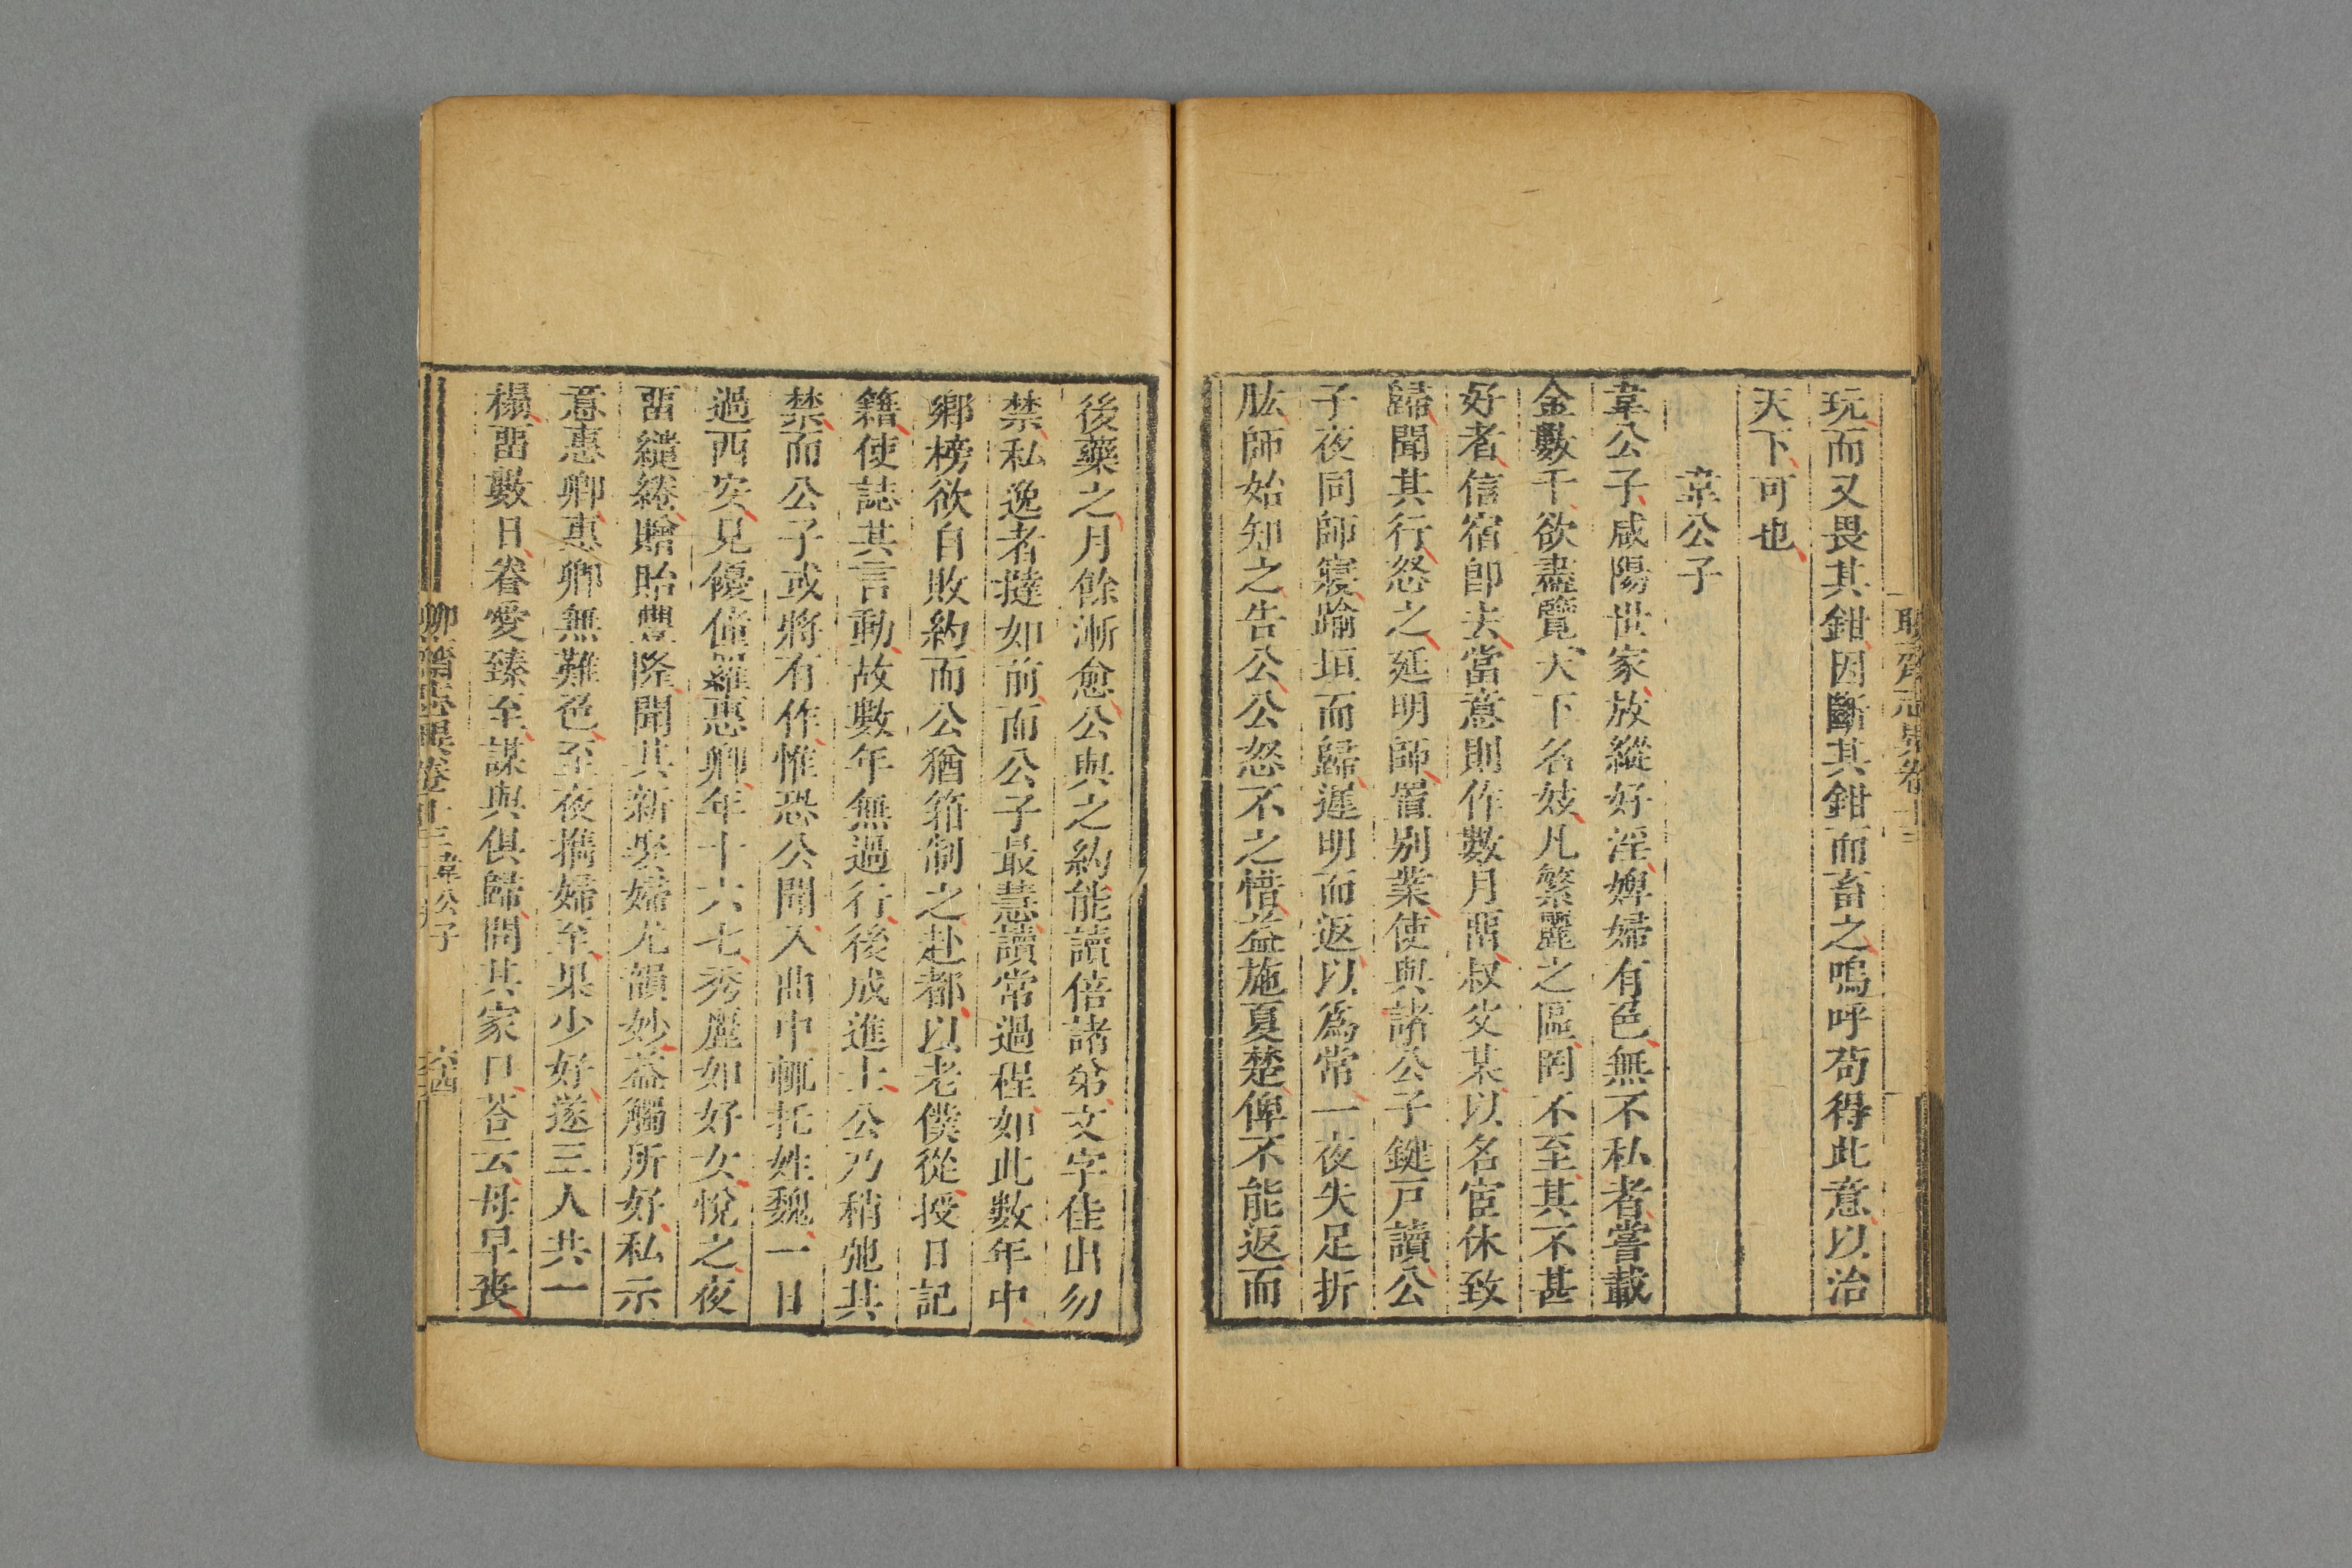 聊齋志異卷十三
玩而又畏其鉗因斷其鉗而畜之嗚呼苟得此意以治
天下可也
韋公子
韋公子咸陽世家放縱好淫婢婦有色無不私者嘗載
金數千欲盡覽天下名妓凡繁麗之區罔不至其不甚
好者信宿卽去當意則作數月畱叔父某以名宦休致
歸聞其行怒之延明師置别業使與諸公子鍵戸讀公
子夜同師寢踰垣而歸遲明而返以爲常一夜失足折
肱師始知之告公公怒不之惜益施夏楚俾不能返而
後藥之月餘漸愈公與之約能讀倍諸弟文字佳出勿
禁私逸者撻如前而公子最慧讀常過程如此數年中
鄉榜欲自敗約而公猶箝制之赴都以老僕從授日記
籍使誌其言動故數年無過行後成進士公乃稍弛其
禁而公子或將有作惟恐公聞入曲中輒托姓魏一日
過西安見優僮羅惠卿年十六七秀麗如好女悅之夜
畱繾綣贈貽豐隆聞其新娶婦尤韻妙益觸所好私示
意惠卿惠卿無難色至夜攜婦至果少好遂三人共一
榻畱數日眷愛臻至謀與俱歸問其家口荅云母早喪
聊齋志異卷十三 韋公子 六四